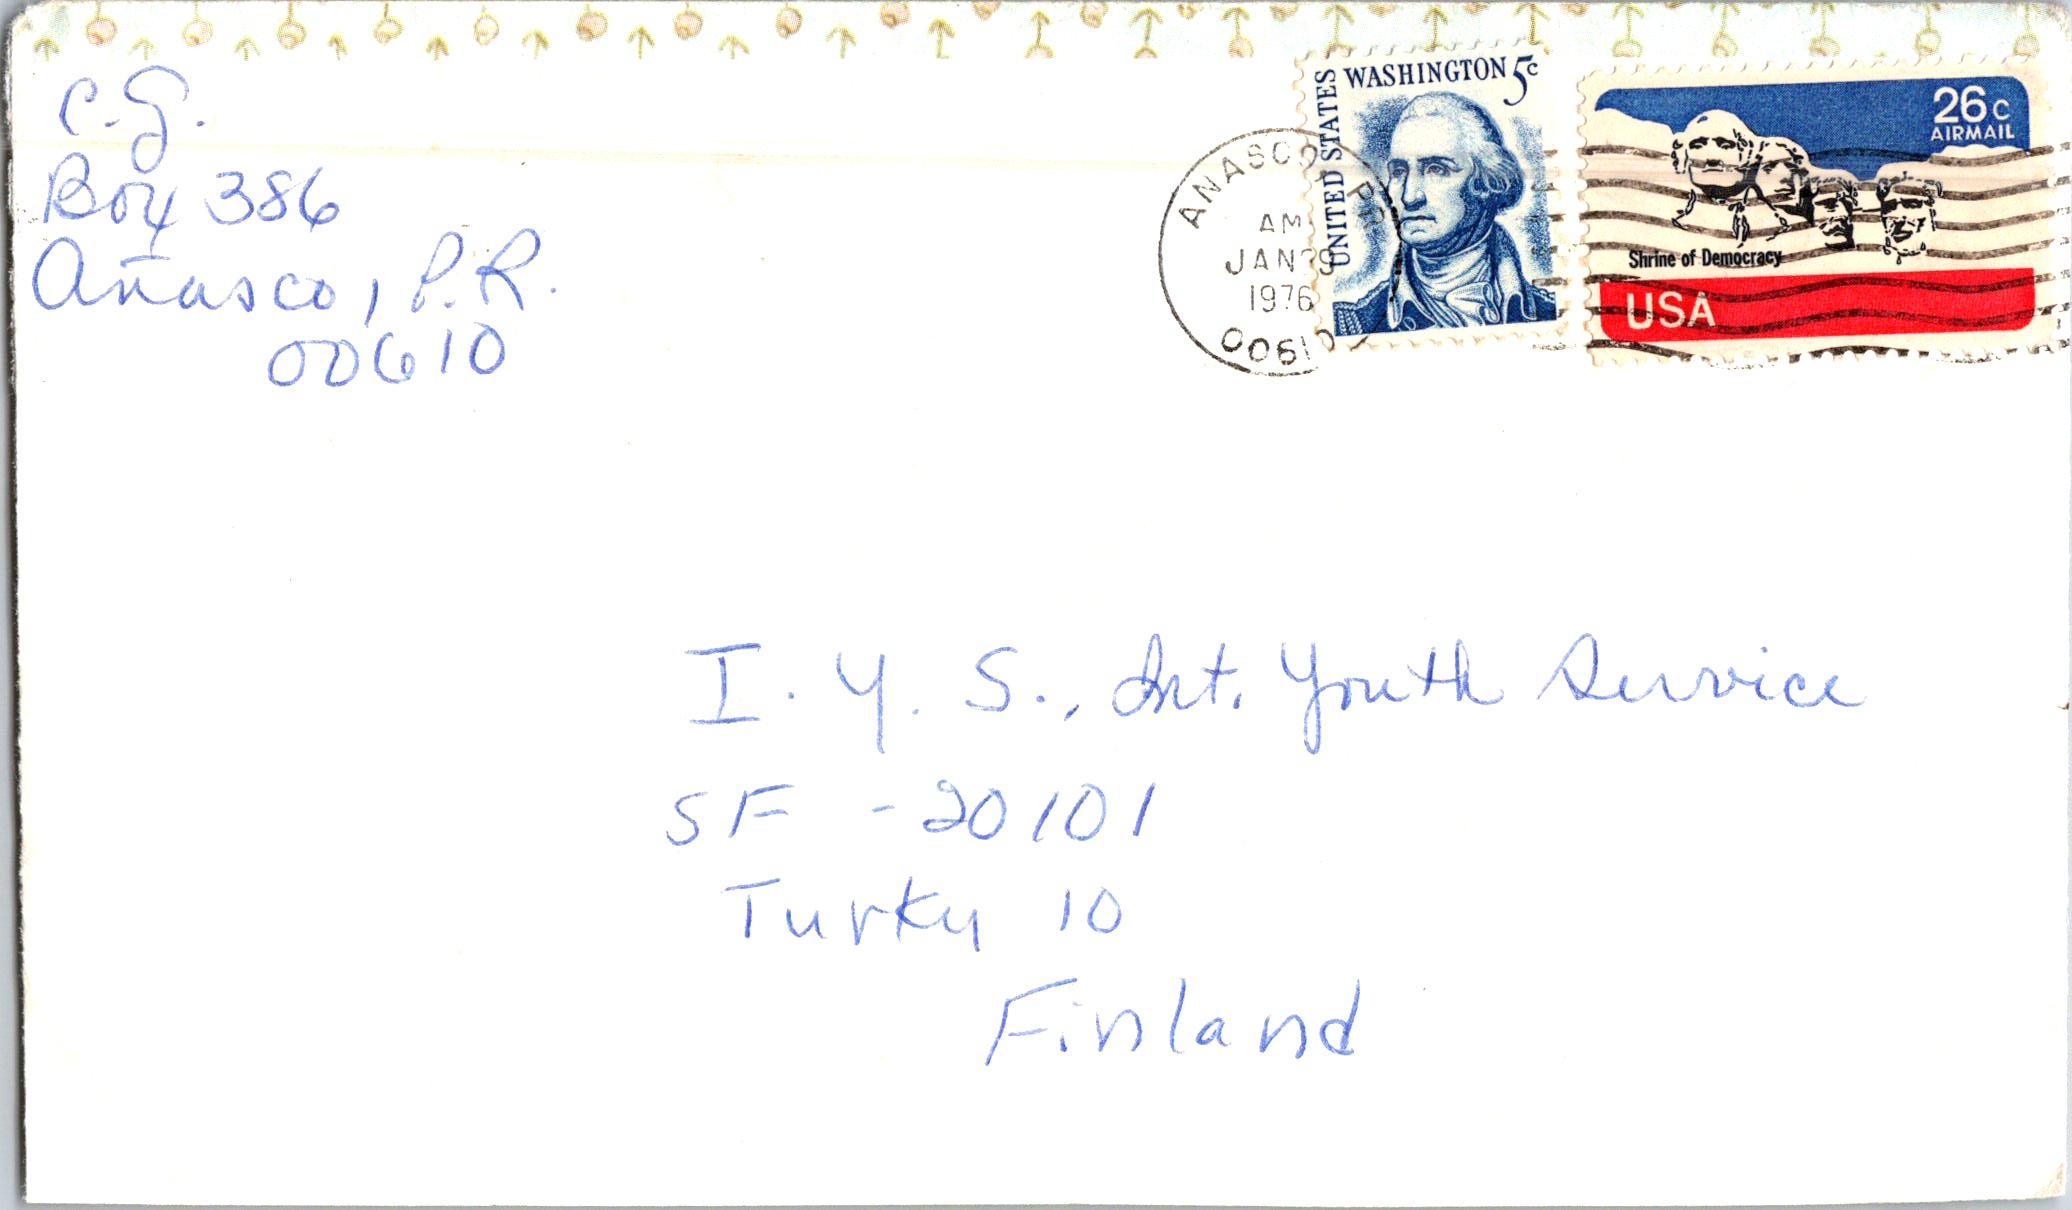 C.G.
Box 386
Añasco, P.R.
00610
ANASCO PR
AM
JAN 29
1976
00610
UNITED STATES
WASHINGTON 5c
26c
AIRMAIL
Shrine of Democracy
USA
I. Y. S., Int. Youth Service
SF - 20101
Turky 10
Finland